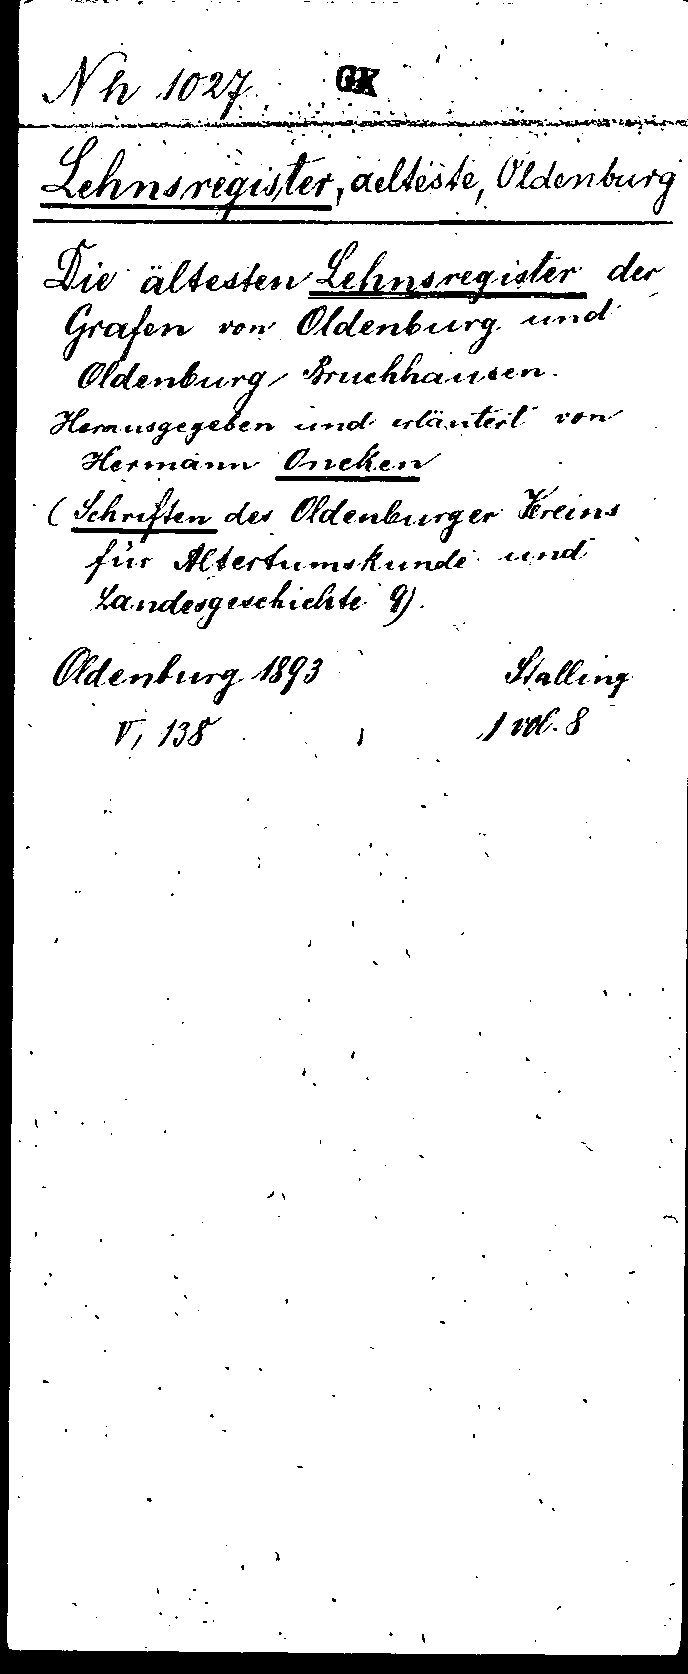 Nh 1027 GK
Lehnsregister, aelteste, Oldenburg
Die ältesten Lehnsregister der
Grafen von Oldenburg und
Oldenburg Bruchhausen.
Herausgegeben und erläutert von
Hermann Oncken
(Schriften des Oldenburger Vereins
für Altertumskunde und
Landesgeschichte 9).
Oldenburg 1893 Stalling
V, 138 1 vol. 8